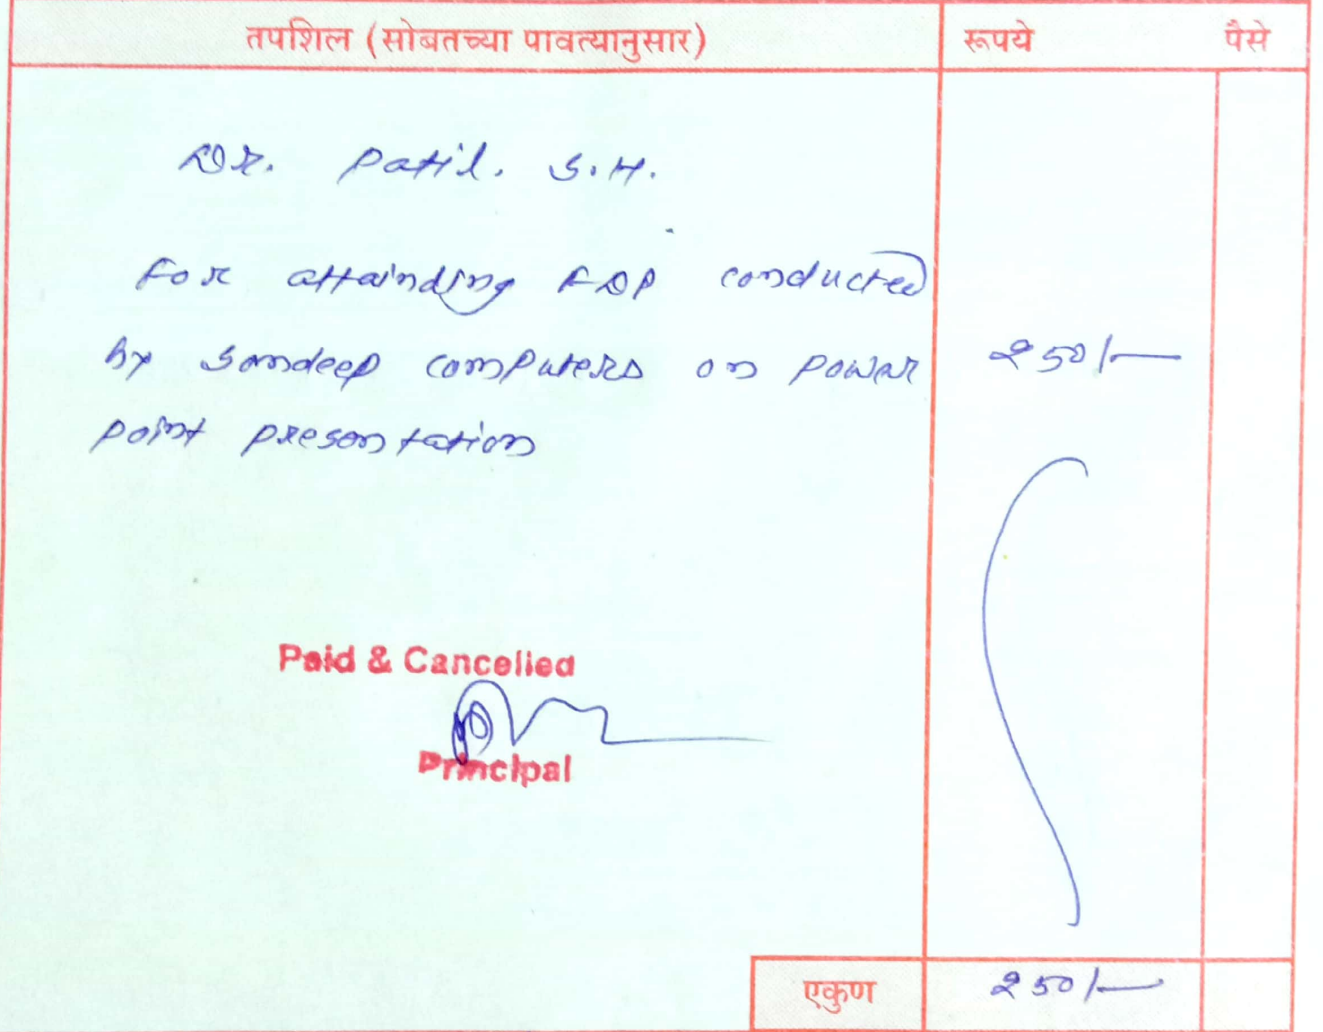 तपशिल (सोबतच्या पावत्यानुसार) रूपये पैसे
Dr. Patil. S.H.
For attainding FDP conducted
by Sandeep computers on power 250/-
point presentation
Paid & Cancelled
Principal
एकुण 250/-